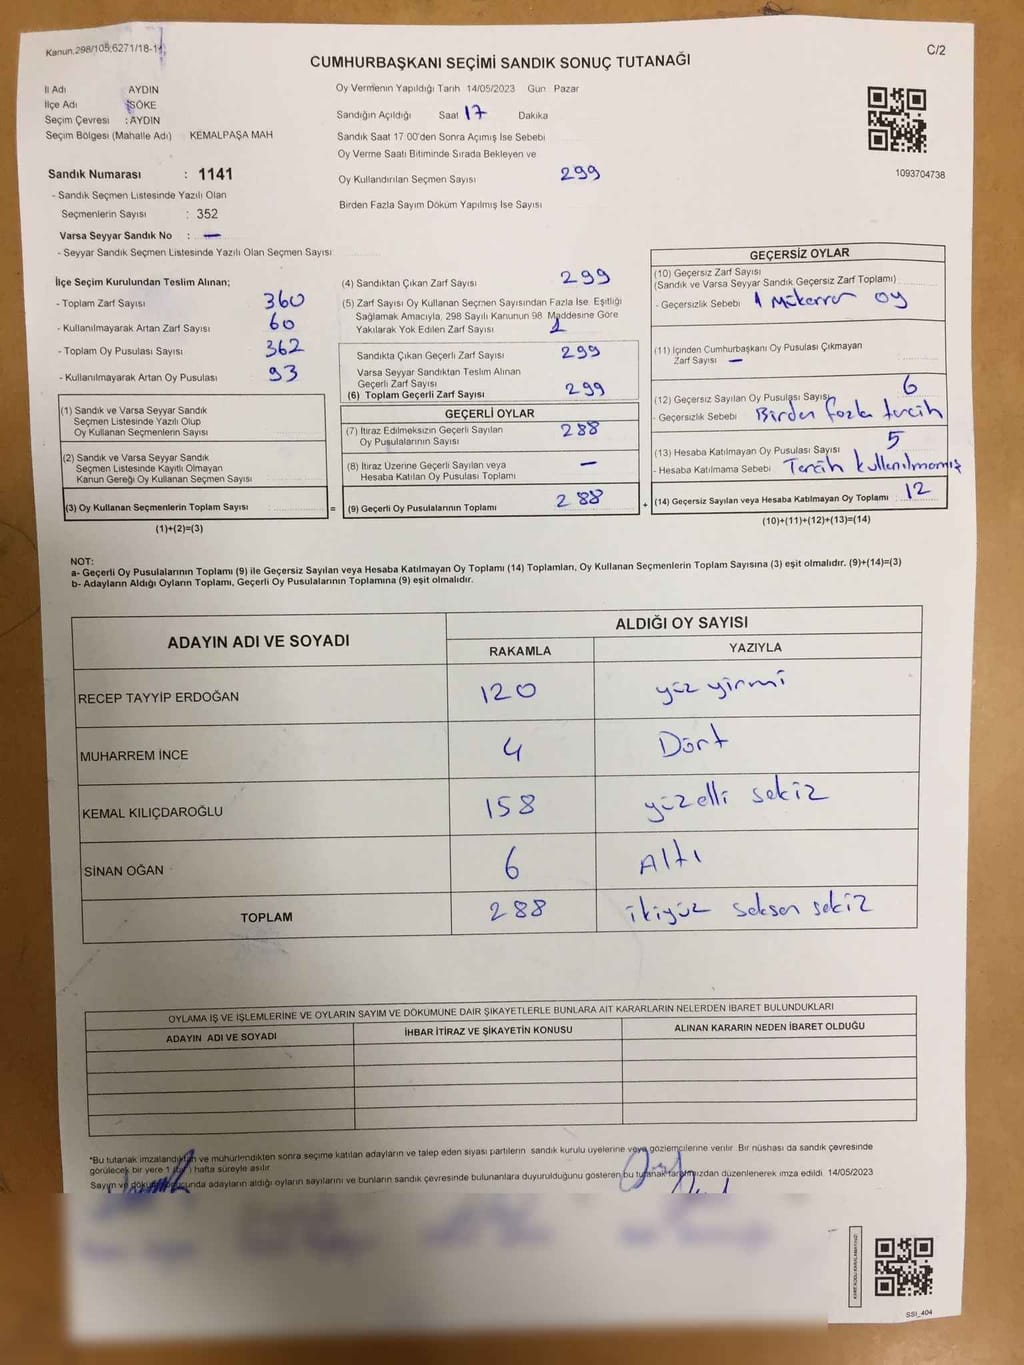 Kanun,298/105;6271/18-1
C/2
CUMHURBAŞKANI SEÇİMİ SANDIK SONUÇ TUTANAĞI
İl Adı AYDIN
İlçe Adı SÖKE
Seçim Çevresi : AYDIN
Seçim Bölgesi (Mahalle Adı) KEMALPAŞA MAH
Sandık Numarası : 1141
- Sandık Seçmen Listesinde Yazılı Olan
Seçmenlerin Sayısı : 352
Varsa Seyyar Sandık No : —
- Seyyar Sandık Seçmen Listesinde Yazılı Olan Seçmen Sayısı
Oy Vermenin Yapıldığı Tarih 14/05/2023 Gün Pazar
Sandığın Açıldığı Saat 17 Dakika
Sandık Saat 17:00'den Sonra Açımış İse Sebebi
Oy Verme Saati Bitiminde Sırada Bekleyen ve
Oy Kullandırılan Seçmen Sayısı 299
Birden Fazla Sayım Döküm Yapılmış İse Sayısı
1093704738
İlçe Seçim Kurulundan Teslim Alınan;
- Toplam Zarf Sayısı 360
- Kullanılmayarak Artan Zarf Sayısı 60
- Toplam Oy Pusulası Sayısı 362
- Kullanılmayarak Artan Oy Pusulası 93
(1) Sandık ve Varsa Seyyar Sandık
Seçmen Listesinde Yazılı Olup
Oy Kullanan Seçmenlerin Sayısı
(2) Sandık ve Varsa Seyyar Sandık
Seçmen Listesinde Kayıtlı Olmayan
Kanun Gereği Oy Kullanan Seçmen Sayısı
(3) Oy Kullanan Seçmenlerin Toplam Sayısı
=
(1)+(2)=(3)
(4) Sandıktan Çıkan Zarf Sayısı 299
(5) Zarf Sayısı Oy Kullanan Seçmen Sayısından Fazla İse, Eşitliği
Sağlamak Amacıyla, 298 Sayılı Kanunun 98. Maddesine Göre
Yakılarak Yok Edilen Zarf Sayısı 1
Sandıkta Çıkan Geçerli Zarf Sayısı 299
Varsa Seyyar Sandıktan Teslim Alınan
Geçerli Zarf Sayısı
(6) Toplam Geçerli Zarf Sayısı 299
GEÇERLİ OYLAR
(7) İtiraz Edilmeksizin Geçerli Sayılan
Oy Pusulalarının Sayısı 288
(8) İtiraz Üzerine Geçerli Sayılan veya
Hesaba Katılan Oy Pusulası Toplamı —
(9) Geçerli Oy Pusulalarının Toplamı 288
+
GEÇERSİZ OYLAR
(10) Geçersiz Zarf Sayısı
(Sandık ve Varsa Seyyar Sandık Geçersiz Zarf Toplamı)
- Geçersizlik Sebebi 1 Mükerrer oy
(11) İçinden Cumhurbaşkanı Oy Pusulası Çıkmayan
Zarf Sayısı —
(12) Geçersiz Sayılan Oy Pusulası Sayısı 6
- Geçersizlik Sebebi Birden fazla tercih
(13) Hesaba Katılmayan Oy Pusulası Sayısı 5
- Hesaba Katılmama Sebebi Tercih kullanılmamış
(14) Geçersiz Sayılan veya Hesaba Katılmayan Oy Toplamı 12
(10)+(11)+(12)+(13)=(14)
NOT:
a- Geçerli Oy Pusulalarının Toplamı (9) ile Geçersiz Sayılan veya Hesaba Katılmayan Oy Toplamı (14) Toplamları, Oy Kullanan Seçmenlerin Toplam Sayısına (3) eşit olmalıdır. (9)+(14)=(3)
b- Adayların Aldığı Oyların Toplamı, Geçerli Oy Pusulalarının Toplamına (9) eşit olmalıdır.
ADAYIN ADI VE SOYADI ALDIĞI OY SAYISI
RAKAMLA YAZIYLA
RECEP TAYYİP ERDOĞAN 120 yüz yirmi
MUHARREM İNCE 4 Dört
KEMAL KILIÇDAROĞLU 158 yüzelli sekiz
SİNAN OĞAN 6 Altı
TOPLAM 288 ikiyüz seksen sekiz
OYLAMA İŞ VE İŞLEMLERİNE VE OYLARIN SAYIM VE DÖKÜMÜNE DAİR ŞİKAYETLERLE BUNLARA AİT KARARLARIN NELERDEN İBARET BULUNDUKLARI
ADAYIN ADI VE SOYADI İHBAR İTİRAZ VE ŞİKAYETİN KONUSU ALINAN KARARIN NEDEN İBARET OLDUĞU
*Bu tutanak imzalandıktan ve mühürlendikten sonra seçime katılan adayların ve talep eden siyasi partilerin sandık kurulu üyelerine veya gözlemcilerine verilir. Bir nüshası da sandık çevresinde
görülecek bir yere 1 (bir) hafta süreyle asılır
Sayım ve döküm sonucunda adayların aldığı oyların sayılarını ve bunların sandık çevresinde bulunanlara duyurulduğunu gösteren bu tutanak tarafımızdan düzenlenerek imza edildi 14/05/2023
SSI_404